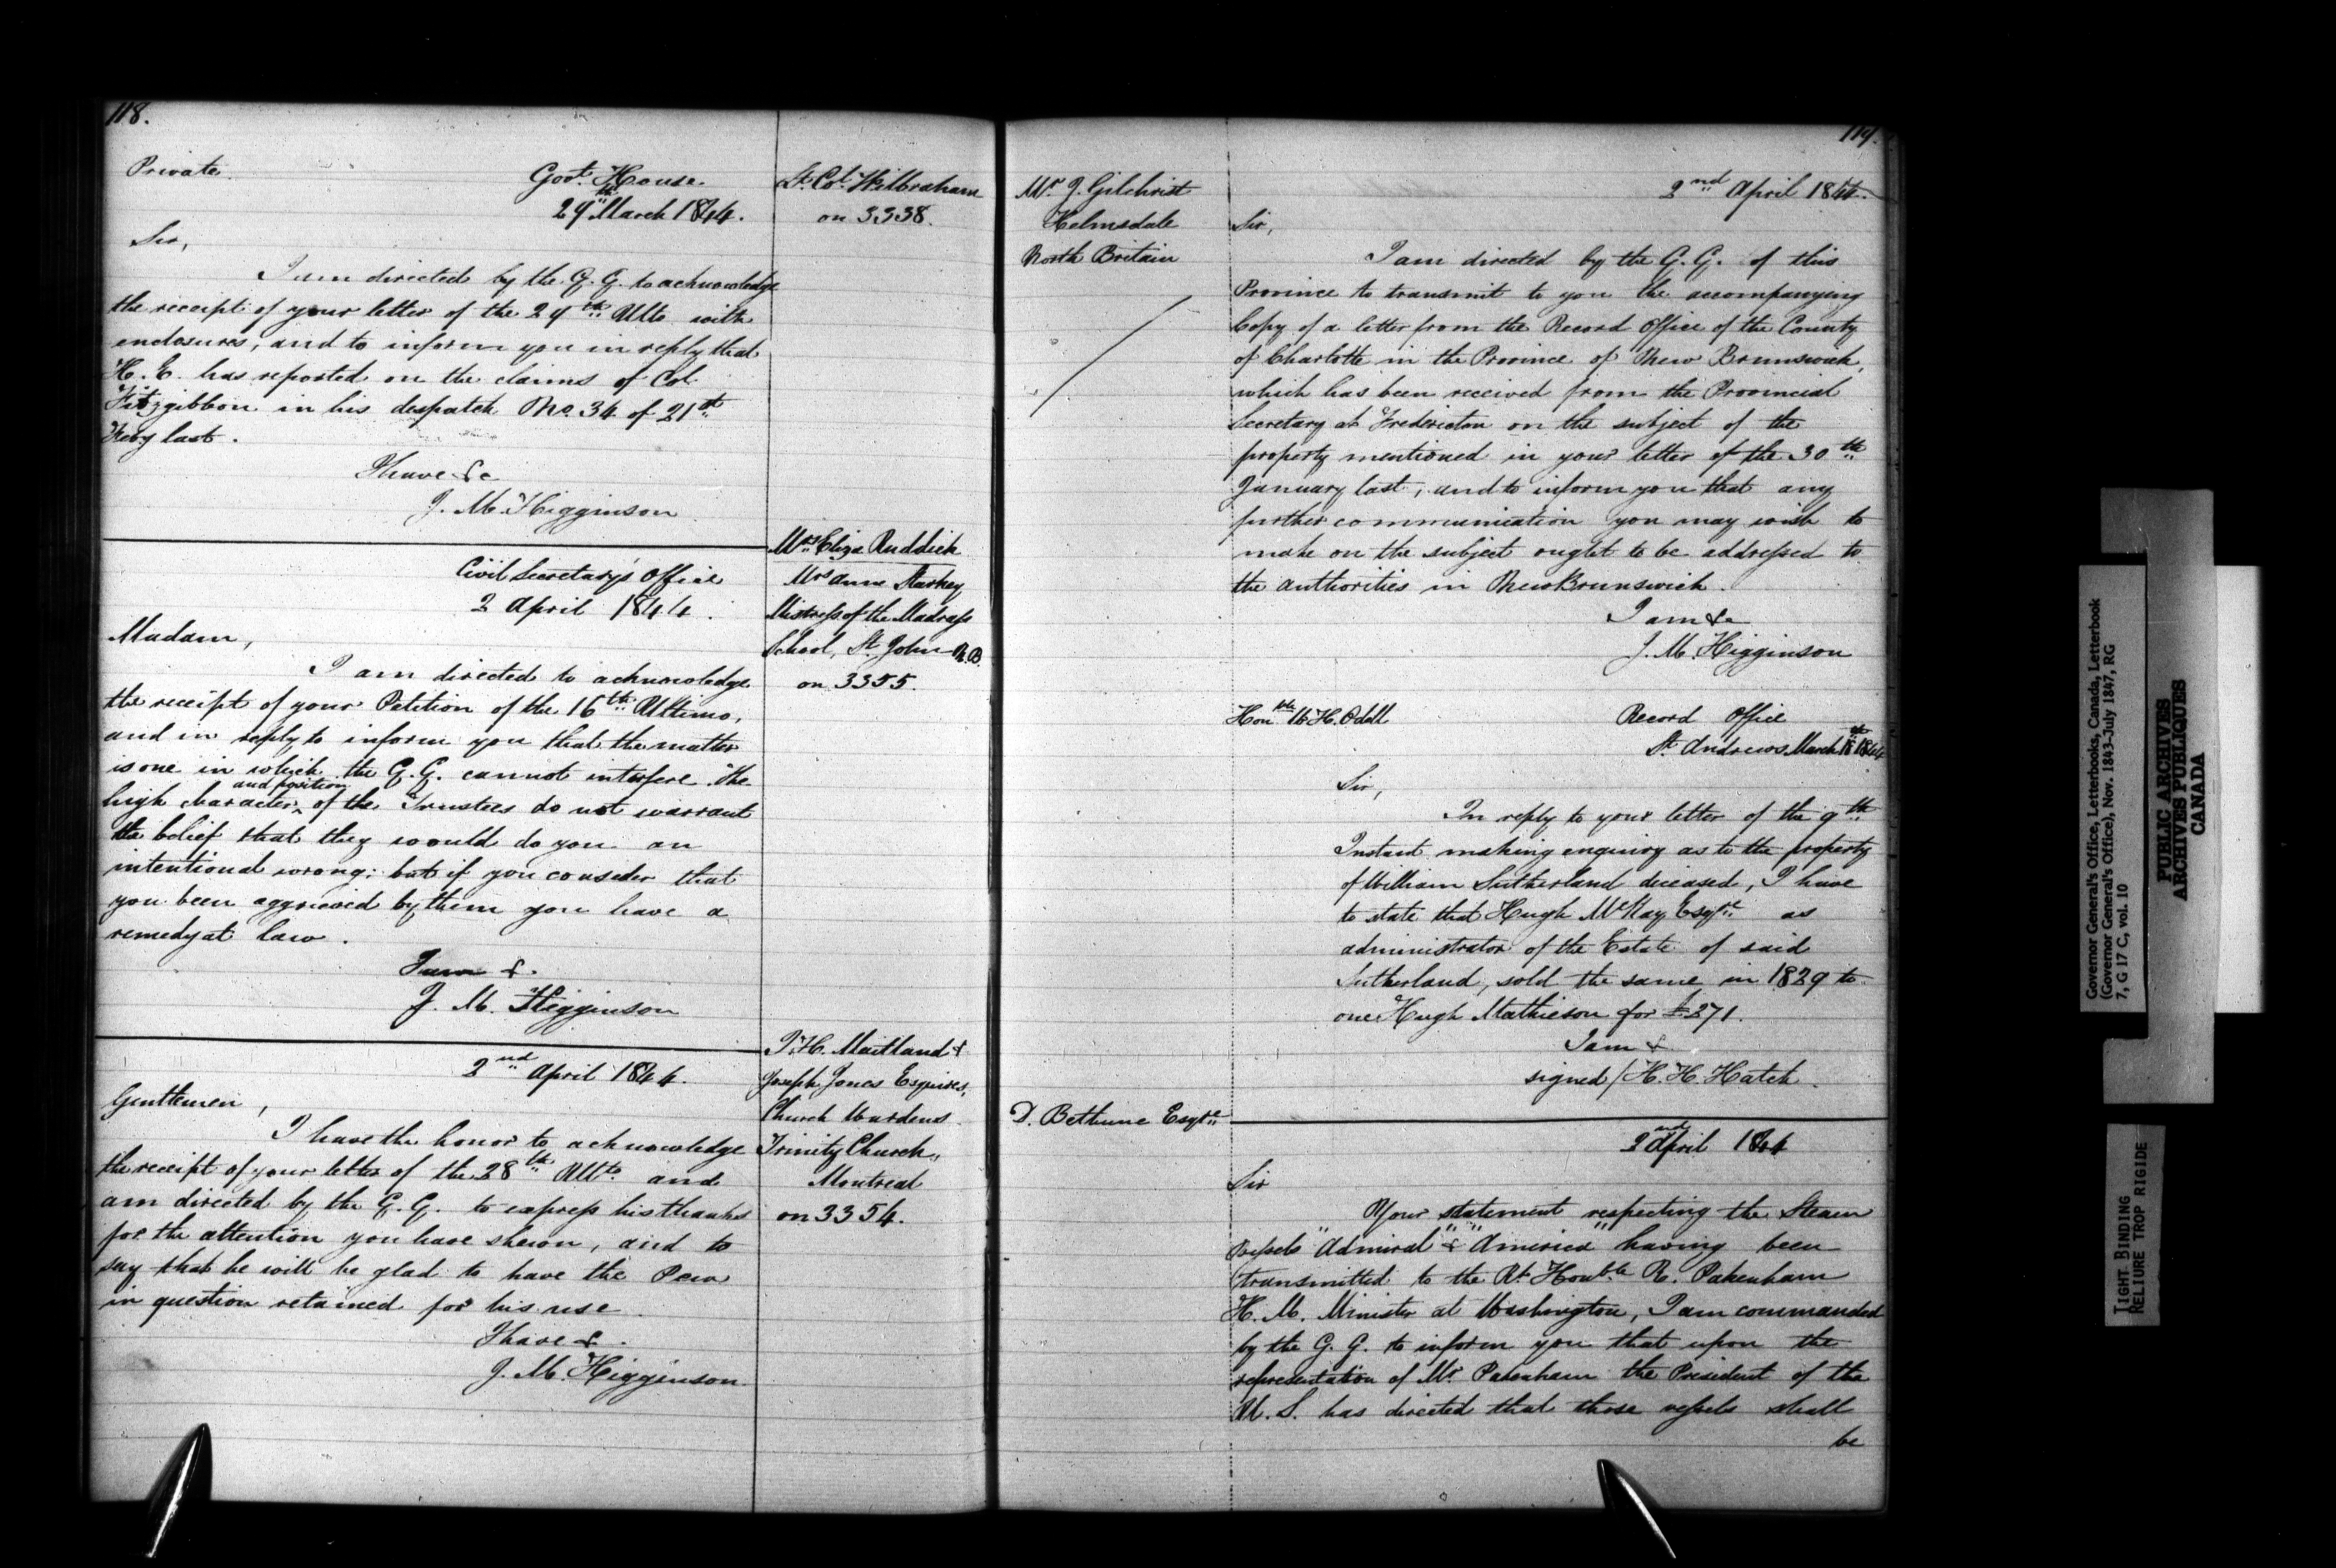 118.
Private.
Govt. House.
29th March 1844.
Lt. Col. Wilbraham
on 3338.
Sir,
I am directed by the G. G. to acknowledge
the receipt of your letter of the 29th Ulto with
enclosures, and to inform you in reply that
H. E. has reported on the claims of Col
Fitzgibbon in his despatch No. 34 of 21st
Feby last.
I have &c
J. M. Higginson
Mrs Eliza Ruddick
Mrs Anne Starkey
Mistress of the Madrass
School, St. John N.B.
on 3355.
Civil Secretary's Office
2 April 1844.
Madam,
I am directed to acknowledge
the receipt of your Petition of the 16th Ultimo,
and in reply to inform you that the matter
is one in which the G. G. cannot interfere. The
high character and position of the Trustees do not warrant
the belief that they would do you an
intentional wrong: but if you consider that
you been aggrieved by them you have a
remedy at law.
I am &.
J. M. Higginson
Maitland &
Joseph Jones Esquires,
Church Wardens
Trinity Church,
Montreal
on 3354.
2nd April 1844.
Gentlemen,
I have the honor to acknowledge
the receipt of your letter of the 28th Ulto. and
am directed by the G. G. to express his thanks
for the attention you have shewn, and to
say that he will be glad to have the Pew
in question retained for his use.
I have &.
J. M. Higginson
119.
Mr J. Gilchrist
Helmsdale
North Britain
2nd April 1844.
Sir,
I am directed by the G. G. of this
Province to transmit to you the accompanying
Copy of a letter from the Record Office of the County
of Charlotte in the Province of New Brunswick,
which has been received from the Provincial
Secretary at Fredericton on the subject of the
property mentioned in your letter of the 30th
January last, and to inform you that any
further communication you may wish to
make on the subject ought to be addressed to
the authorities in New Brunswick.
I am &c
J. M. Higginson
Honble W. H. Odell
Record Office
St. Andrews March 1844
Sir,
In reply to your letter of the 9th
Instant making enquiry as to the property
of William Sutherland deceased, I have
to state that Hugh McKay Esqre as
administrator of the Estate of said
Sutherland, sold the same in 1829 to
one Hugh Mathieson for £271.
I am &
signed/ H. H. Hatch.
D. Bethune Esqre
2nd April 1844
Sir
Your statement respecting the Steam
vessels "Admiral" & "America" having been
transmitted to the Rt. Honble R. Pakenham
H. M. Minister at Washington, I am commanded
by the G. G. to inform you that upon the
representation of Mr Pakenham the President of the
U. S. has directed that those vessels shall
be
Governor General's Office, Letterbooks, Canada, Letterbook
(Governor General's Office), Nov. 1843-July 1847, RG
7, G 17 C, vol. 10
PUBLIC ARCHIVES
ARCHIVES PUBLIQUES
CANADA
TIGHT BINDING
RELIURE TROP RIGIDE